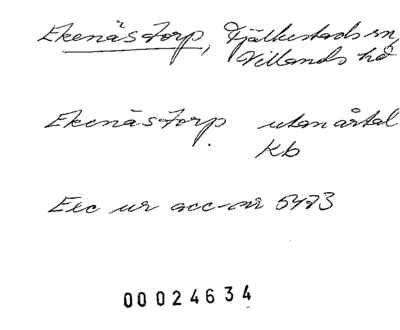 Ekenästorp, Fjälkestads sn,
Villands hd
Ekenästorp utan årtal
Kb
Exc ur acc-nr 5473
00024634